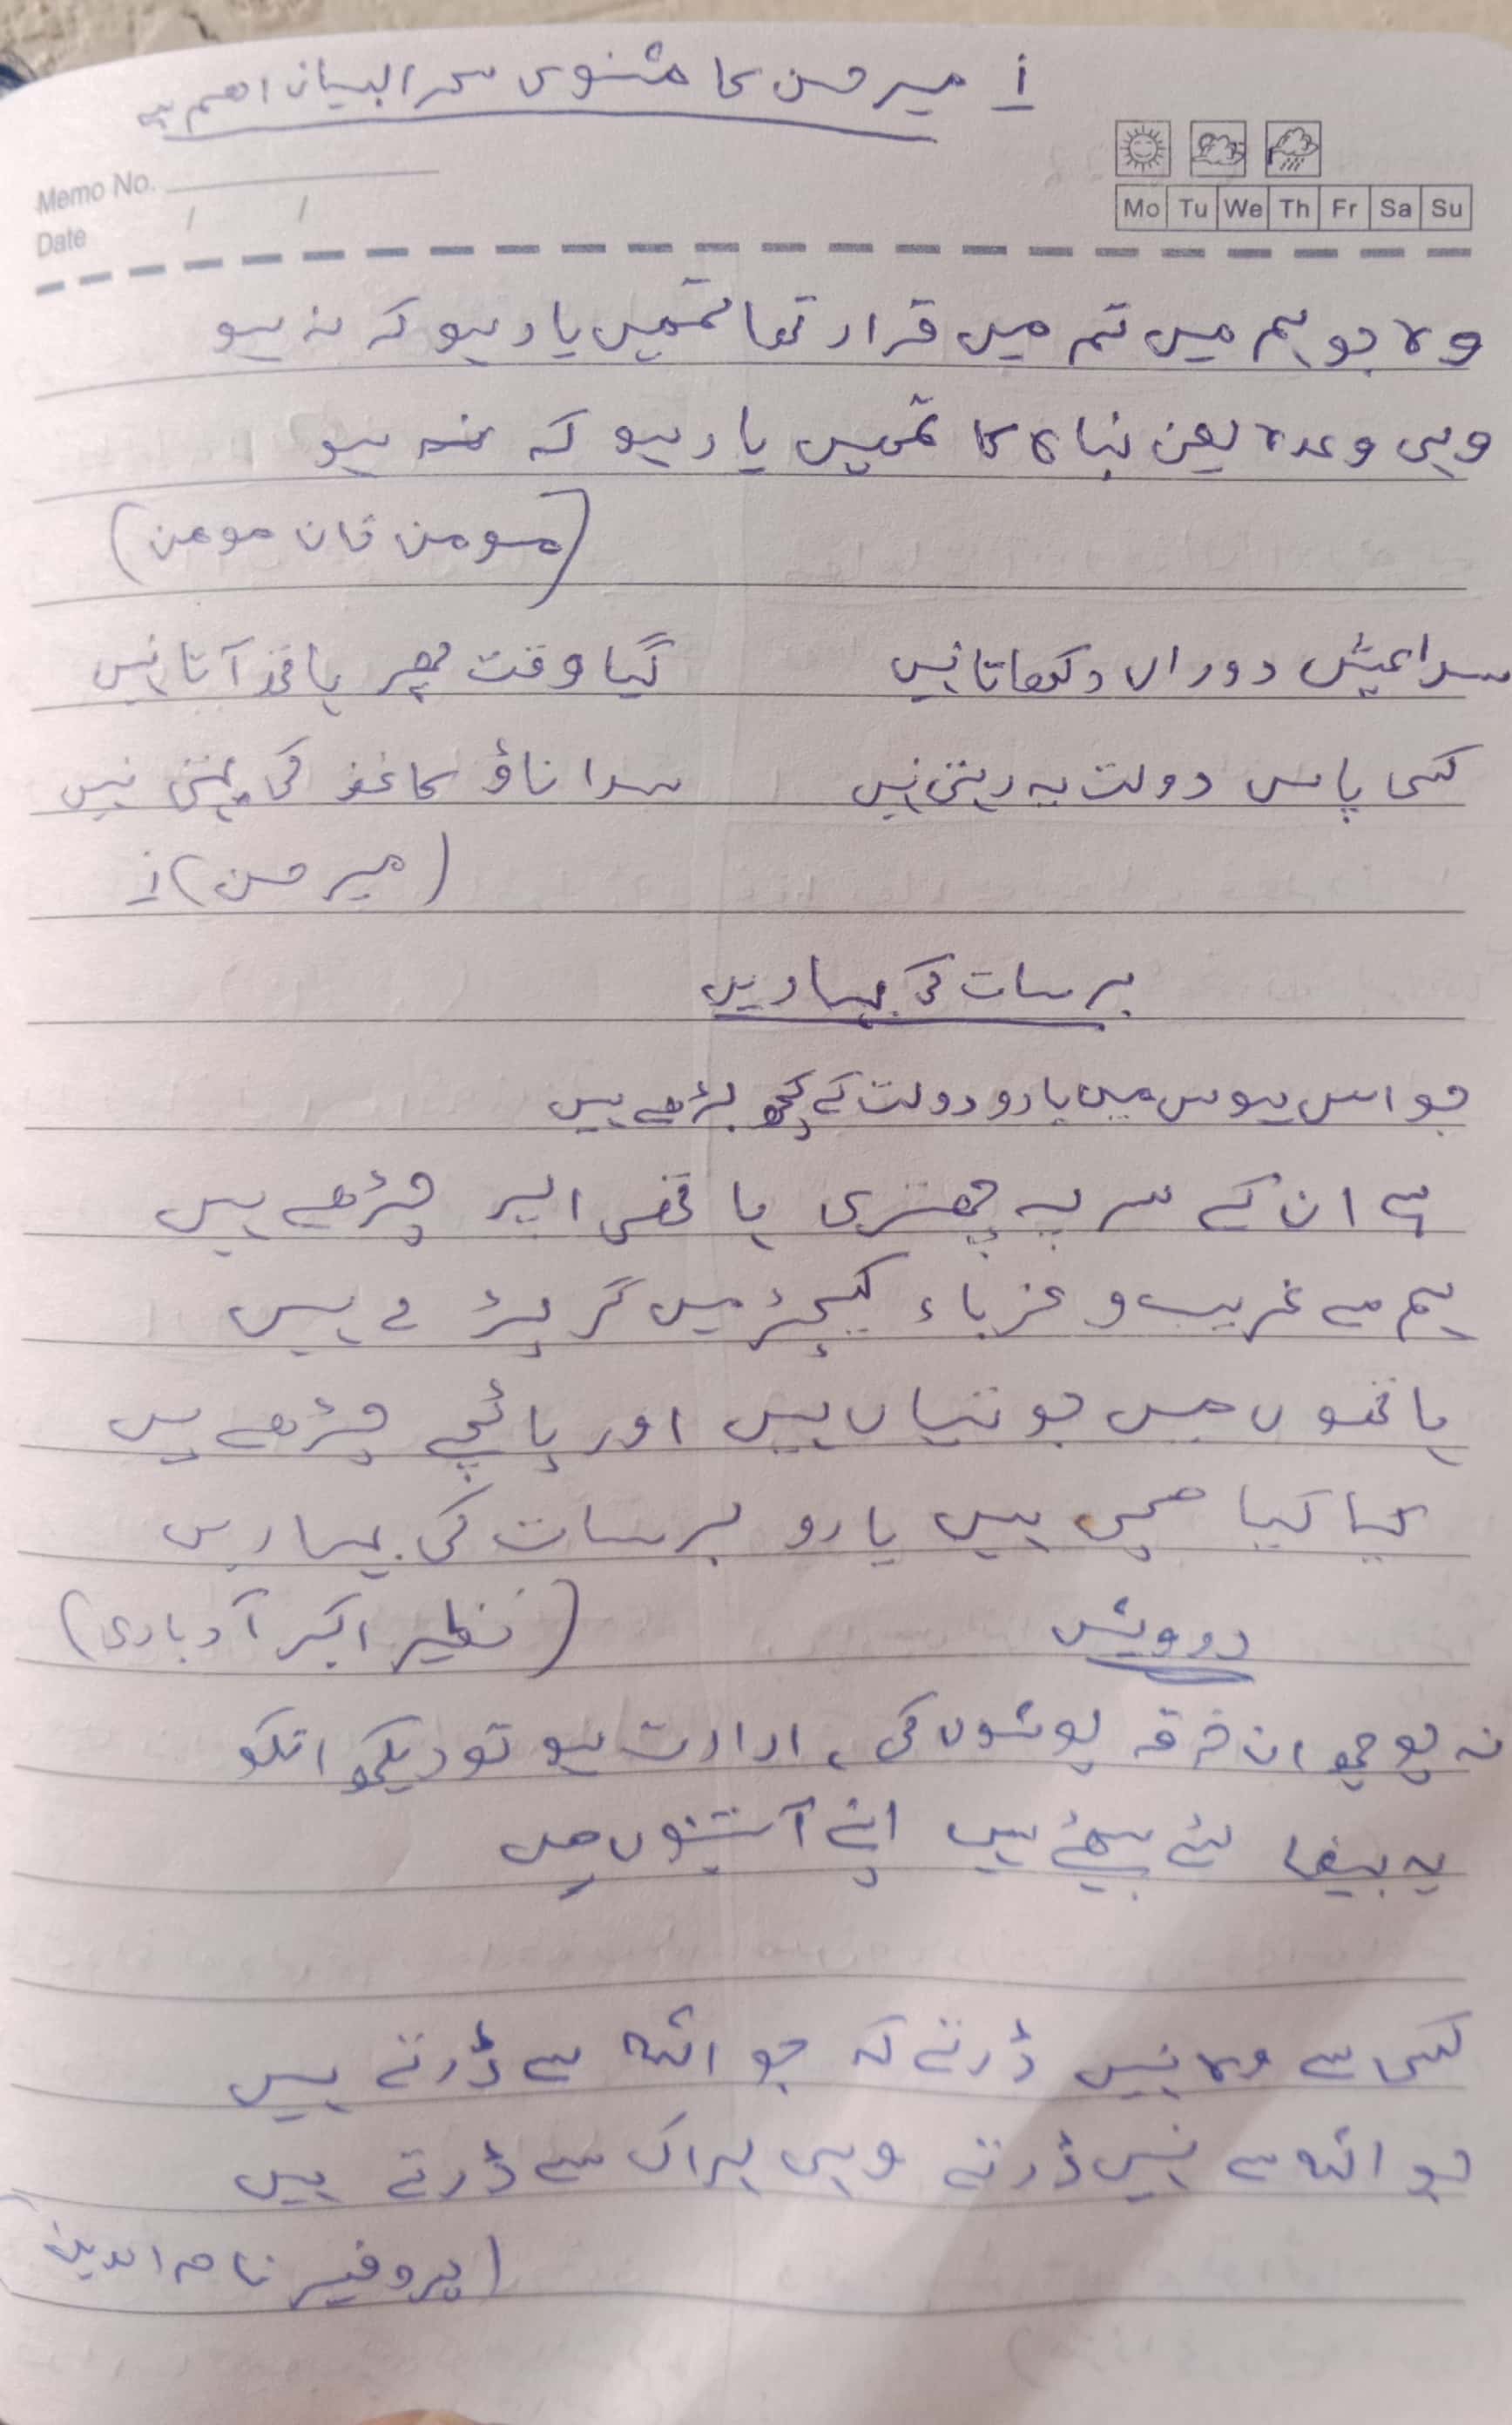 أ میر حسن کا مثنوی سحر البیان اہم ہے
Memo No.
Date / /
Mo Tu We Th Fr Sa Su
وہ جو ہم میں تم میں قرار تھا تمہیں یاد ہو کہ نہ ہو
وہی وعدہ یعنی نباہ کا تمہیں یاد ہو کہ نہ ہو
(مومن خان مومن)
سدا عیش دوراں دکھاتا نہیں گیا وقت پھر ہاتھ آتا نہیں
کسی پاس دولت یہ رہتی نہیں سدا ناؤ کاغذ کی بہتی نہیں
(میر حسن) أ
برسات کی بہاریں
جو اس ہوس میں یارو دولت کے کچھ بڑھے ہیں
ہے ان کے سر پہ چھتری ہاتھی اپر چڑھے ہیں
ہم سے غریب و غرباء کیچڑ میں گر پڑے ہیں
ہاتھوں میں جوتیاں ہیں اور پائچے چڑھے ہیں
کیا کیا مچی ہیں یارو برسات کی بہاریں
(نظیر اکبر آبادی)
درویش
نہ پوچھو ان خرقہ پوشوں کی، ارادت ہو تو دیکھو انکو
ید بیضا لئے بیٹھے ہیں اپنے آستینوں میں
کسی سے وہ نہیں ڈرتے کہ جو اللہ سے ڈرتے ہیں
جو اللہ سے نہیں ڈرتے وہی ہراک سے ڈرتے ہیں
(پروفیسر